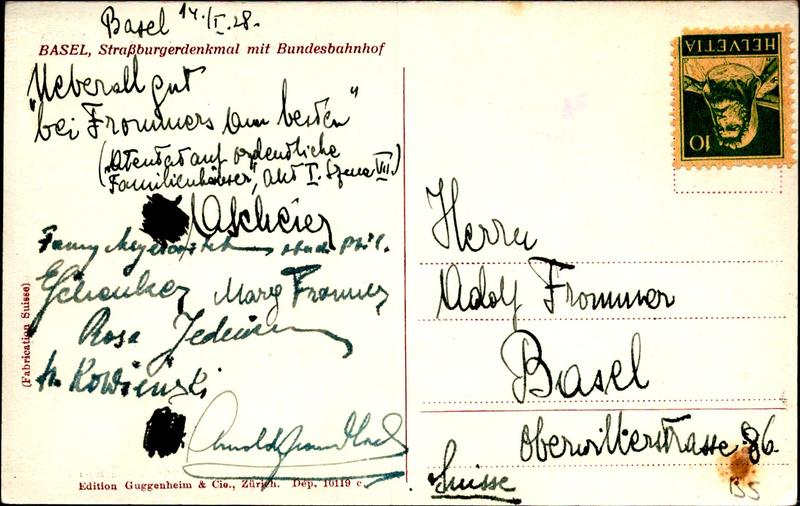 Basel 14./I. 28.
BASEL, Straßburgerdenkmal mit Bundesbahnhof
Ueberall gut
"bei Frommers am besten"
("Atendat auf ordentliche
Familienhäuser", akt I. Szena VII.)
Fanny stud. phil.
Schenker Marg Frommer
Rosa
Kowienski
Arnold
(Fabrication Suisse)
Edition Guggenheim & Cie., Zürich. Dep. 10119 c
HELVETIA
10
Herrn
Adolf Frommer
Basel
Oberwilerstrasse 86.
Suisse
BS